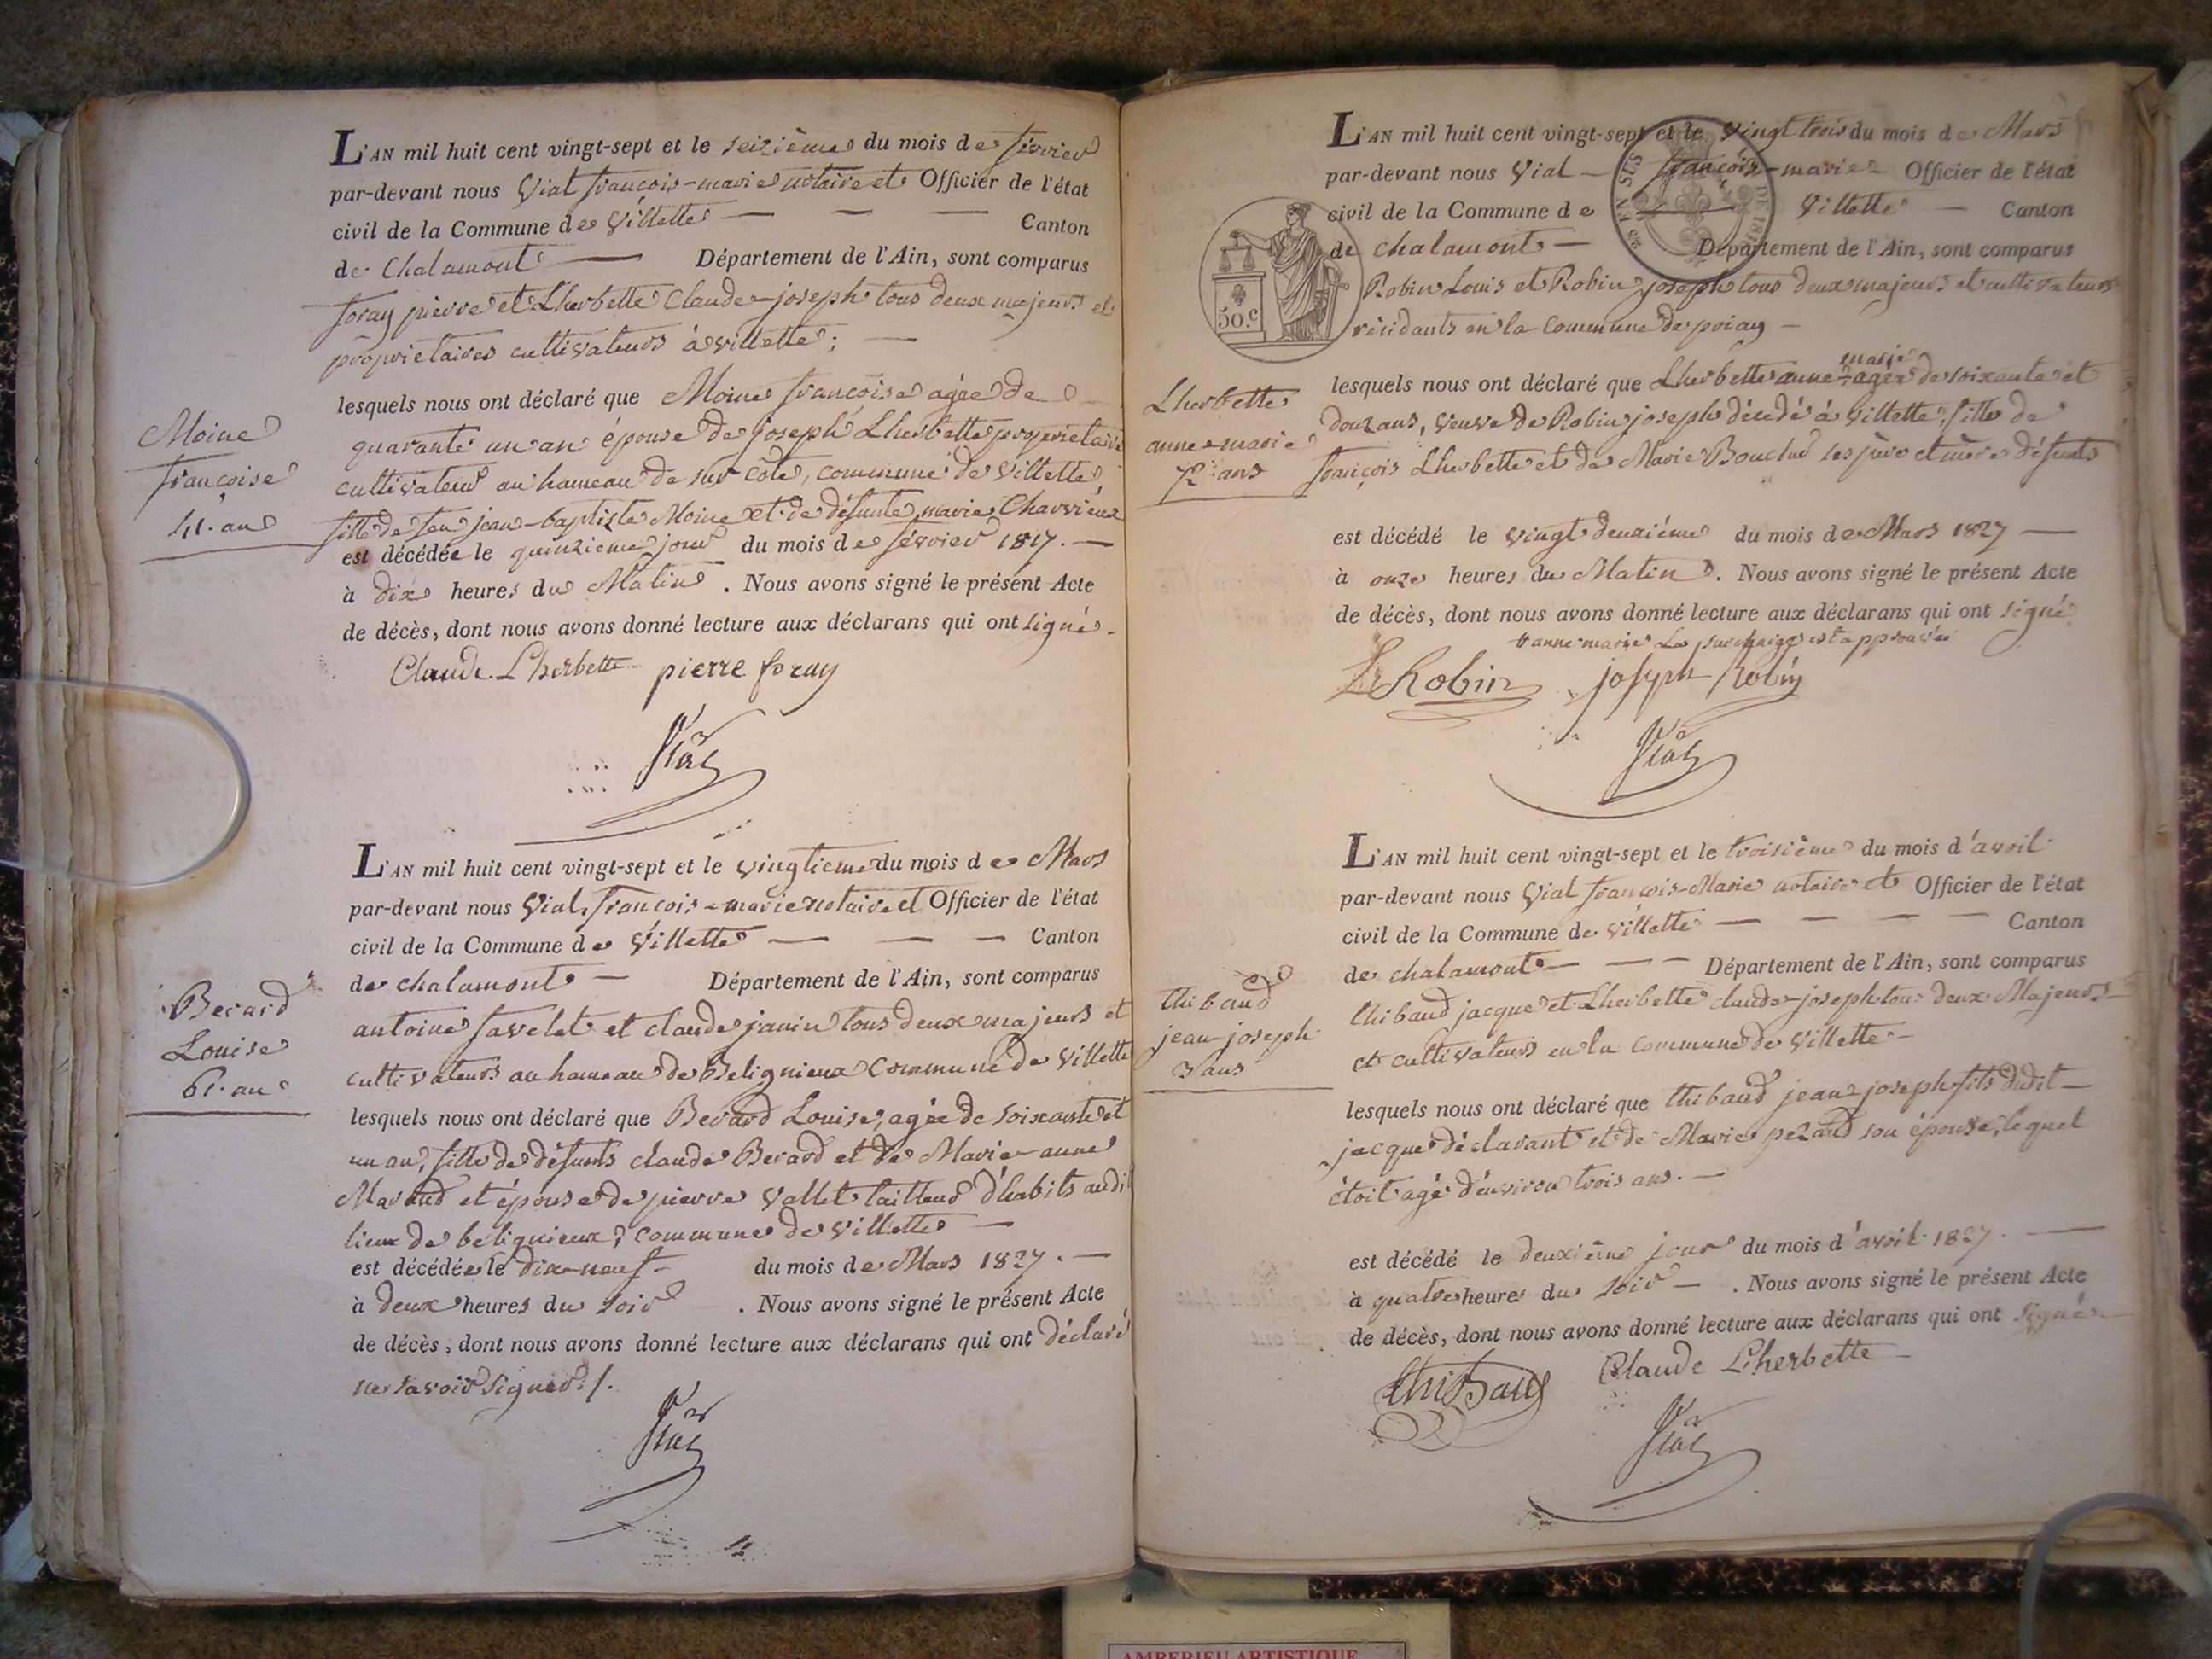 L'AN mil huit cent vingt-sept et le seizième du mois de février
par-devant nous Vial françois-marie notaire et Officier de l'état
civil de la Commune de Villette — — — Canton
de Chalamont — Département de l'Ain, sont comparus
foray pierre et Lherbette Claude-joseph tous deux majeurs et
propriétaires cultivateurs à villette; —
lesquels nous ont déclaré que Moine françoise agée de
quarante un an épouse de joseph Lherbette propriétaire
cultivateur au hameau de sur côte, commune de Villette,
fille de feu jean-baptiste Moine et de défunte marie Charvieux
est décédée le quinzieme jour du mois de février 1827. —
à dix heures du Matin. Nous avons signé le présent Acte
de décès, dont nous avons donné lecture aux déclarans qui ont signé.
Claude Lherbette pierre foray
Vial
Moine
françoise
41. an
L'AN mil huit cent vingt-sept et le vingtieme du mois de Mars
par-devant nous Vial, françois-marie notaire et Officier de l'état
civil de la Commune de Villette — — — Canton
de chalamont — Département de l'Ain, sont comparus
antoine favelet et claude janin tous deux majeurs et
cultivateurs au hameau de Belignieux Commune de Villette
lesquels nous ont déclaré que Berard Louise, agée de soixante et
un an, fille de défunts claude Berard et de Marie-anne
et épouse de pierre Vallet tailleur d'habits audit
lieux de belignieux, commune de Villette —
est décédée le dix-neuf — du mois de Mars 1827. —
à deux heures du soir. Nous avons signé le présent Acte
de décès, dont nous avons donné lecture aux déclarans qui ont déclaré
ne savoir signer./.
Vial
Berard
Louise
61. an
L'AN mil huit cent vingt-sept et le vingt trois du mois de Mars
par-devant nous Vial — françois-marie Officier de l'état
civil de la Commune de — Villette — Canton
de chalamont — Département de l'Ain, sont comparus
Robin Louis et Robin joseph tous deux majeurs et cultivateurs
résidants en la commune de priay —
marie
lesquels nous ont déclaré que Lherbette anne agée de soixante et
douz ans, veuve de Robin joseph décédé à Villette, fille de
françois Lherbette et de Marie Bouchud ses père et mère défunts
est décédé le vingt deuxiéme du mois de Mars 1827 —
à onze heures du Matin. Nous avons signé le présent Acte
de décès, dont nous avons donné lecture aux déclarans qui ont signé
anne-marie La surcharge est approuvée
Robin joseph Robin
Vial
50.c
Lherbette
anne-marie
72 ans
L'AN mil huit cent vingt-sept et le troisième du mois d'avril
par-devant nous Vial françois-Marie notaire et Officier de l'état
civil de la Commune de Villette — — — — Canton
de chalamont — — — Département de l'Ain, sont comparus
thibaud jacque et Lherbette claude-joseph tous deux Majeurs —
et cultivateurs en la commune de Villette —
lesquels nous ont déclaré que thibaud jean joseph fils dudit —
jacque déclarant et de Marie pezand son épouse, lequel
étoit agé d'environ trois ans. —
est décédé le deuxième jour du mois d'avril 1827. —
à quatre heures du soir — . Nous avons signé le présent Acte
de décès, dont nous avons donné lecture aux déclarans qui ont signés —
thibaud Claude Lherbette
Vial
thibaud
jean-joseph
3 ans
AMBERIEU ARTISTIQUE